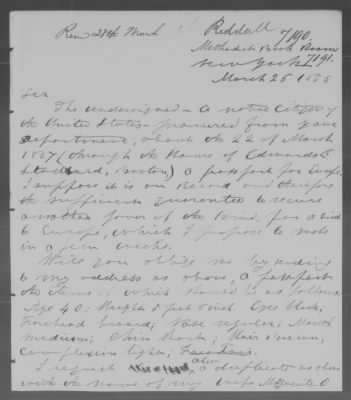 Rec 28th March
Riddall 7190
Methodist Book Rooms
New York 7191.
March 25 1865
Sir
The undersigned - a native Citizen of
the United States - procured from your
department, about the 22 of March
1857 (through the house of Edwards &
Boston) a passport for Europe.
I suppose it is on record and therefore
the sufficient guarantee to secure
another favor of the kind, for a visit
to Europe, which I propose to make
in a few weeks.
Will you oblige me by sending
to my address as above, a passport
the items which should be as follows
Age 40: Height 5 feet 5 inch Eyes black,
Forehead broad; Nose regular; Mouth
medium; Chin short; Hair brown,
Complexion light;
I request also a duplicate as above
with the name of my wife